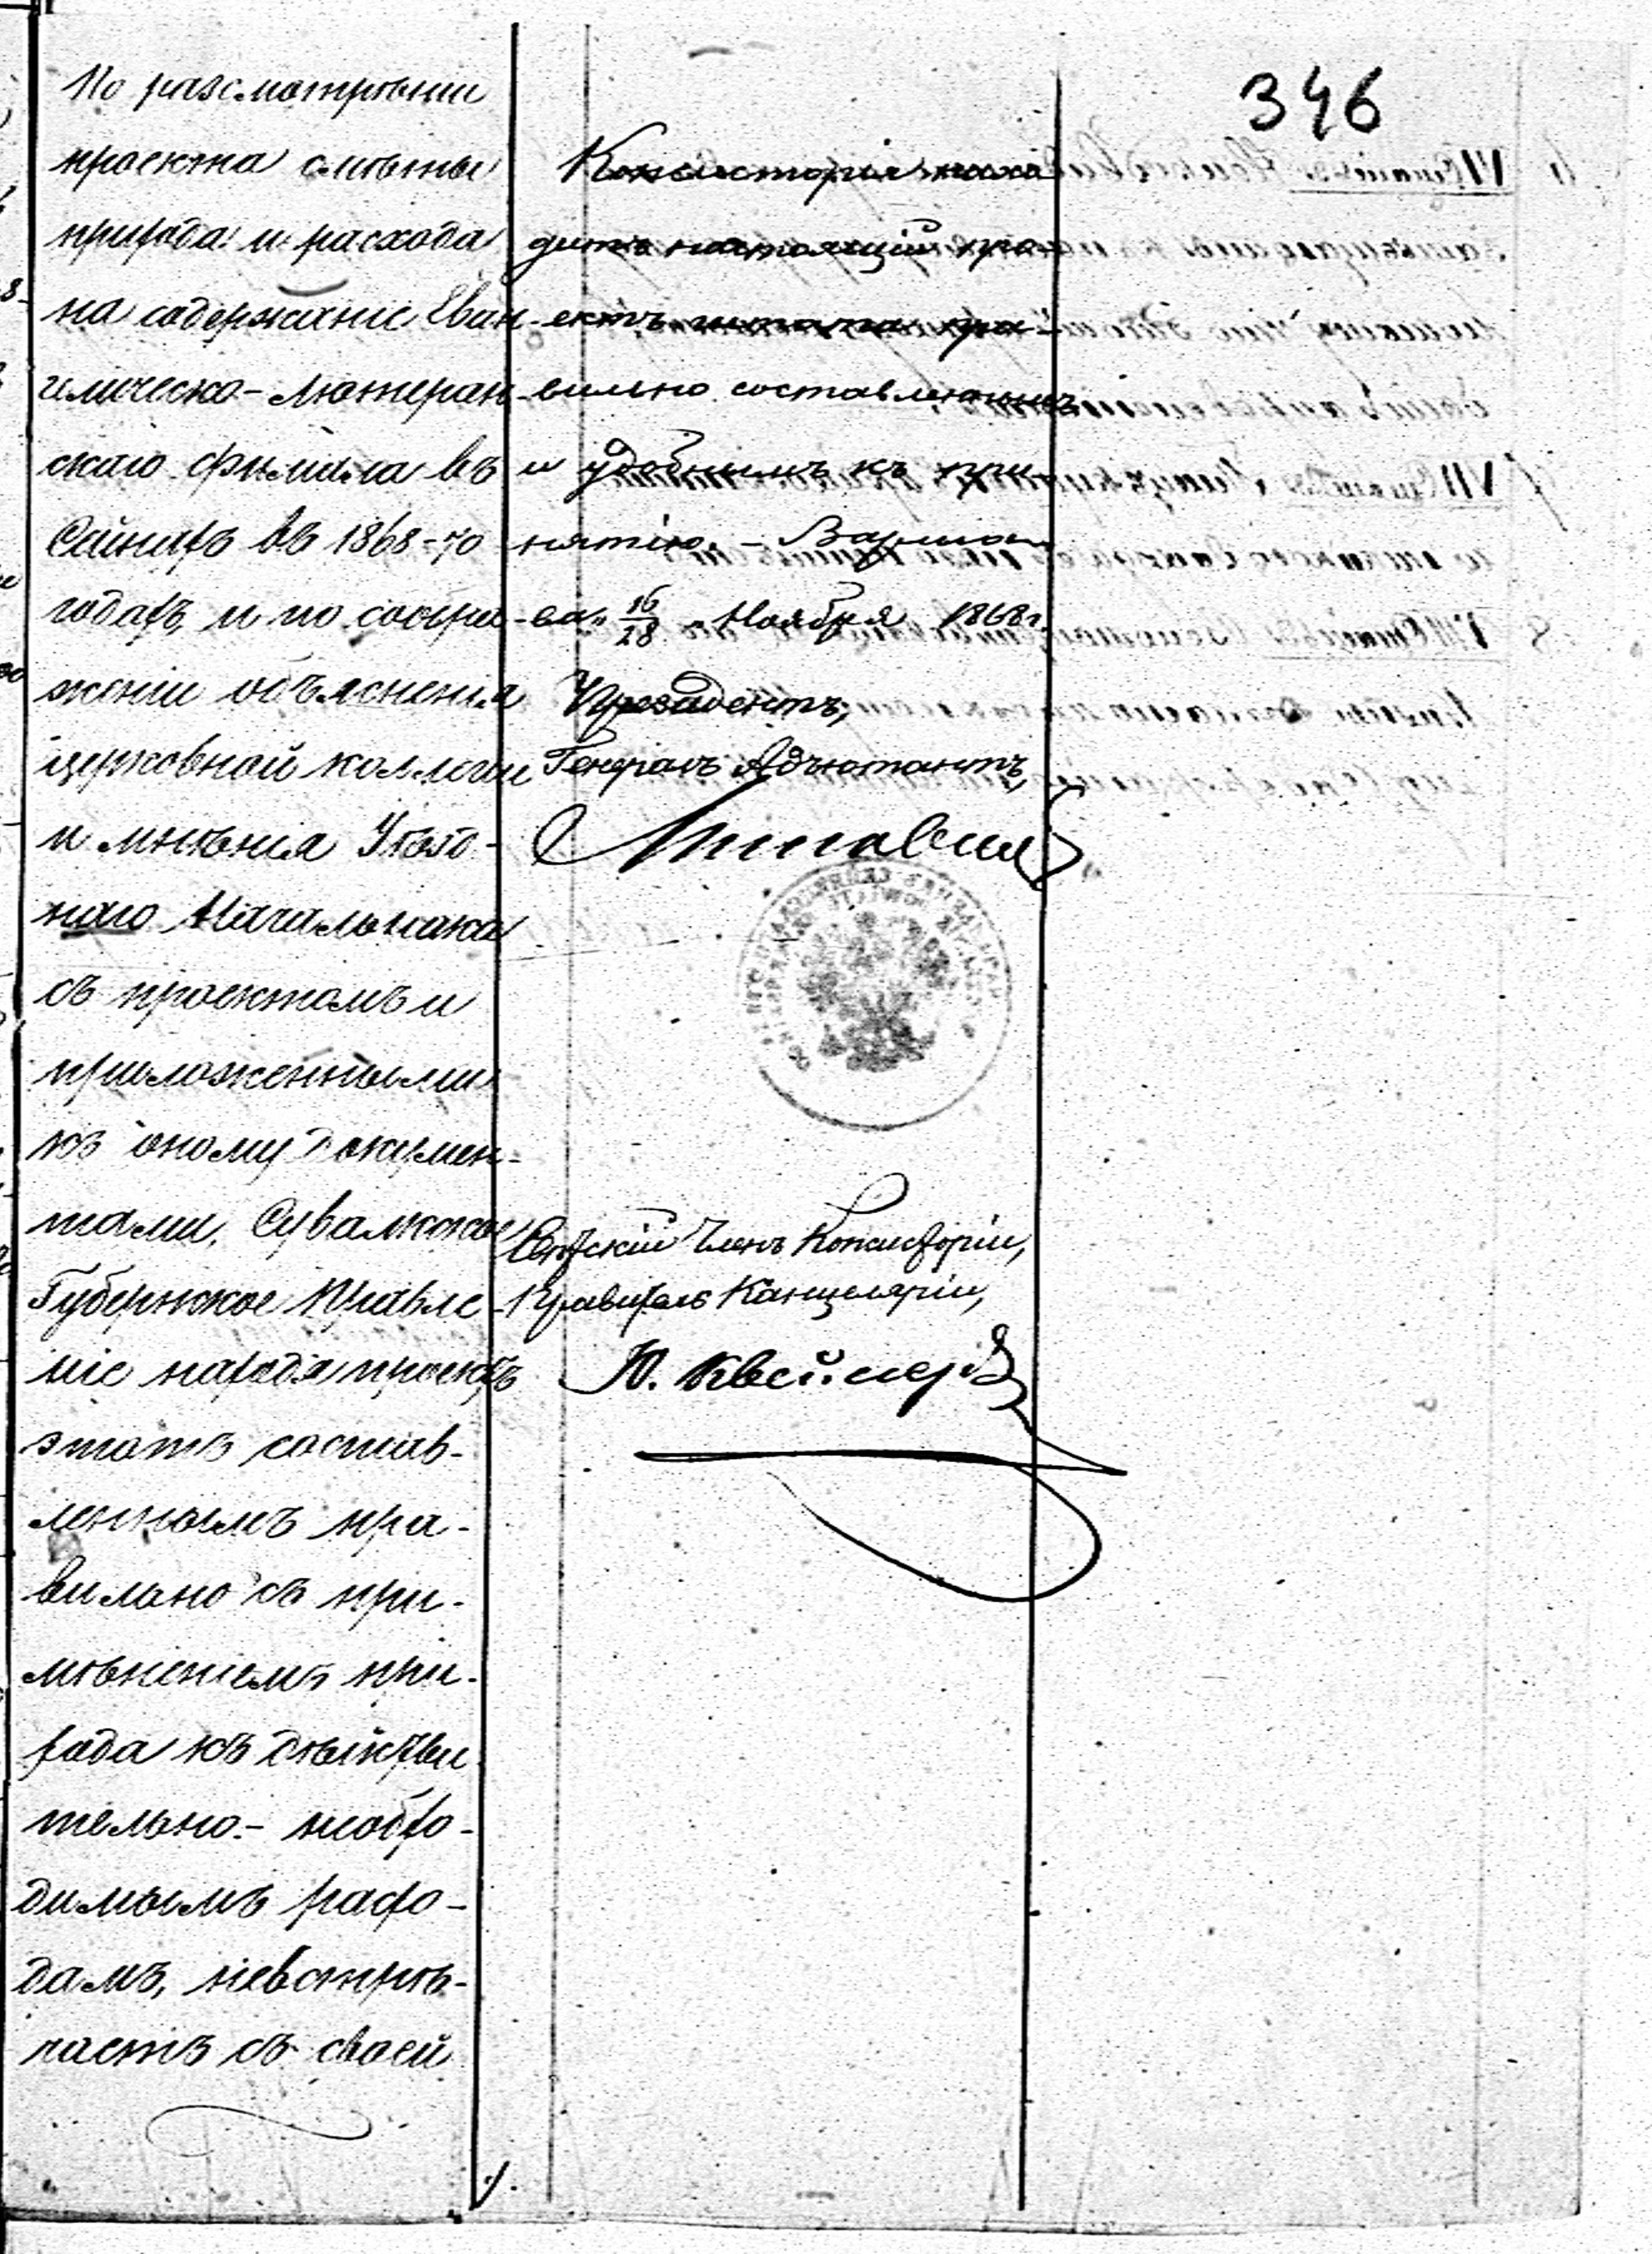 346
По разсмотрѣнии
проекта смѣты
прихода и расхода
на содержаніе Еван-
гелическо-Лютеран-
скаго филиала въ
Сейнахъ въ 1868-70
годахъ, и по сообра-
женіи объясненія
церковной коллегіи
и мнѣнія Уѣзд-
наго Начальника
съ проектомъ и
приложенными
къ оному докумен-
тами, Сувалкское
Губернское Правле-
ніе находя проектъ
этотъ состав-
леннымъ пра-
вильно съ при-
мѣненіемъ при-
хода къ дѣйстви
тельно-необхо-
димымъ расхо-
дамъ, невстрѣ-
чаетъ съ своей
Консисторія нахо
дитъ настоящій про
ектъ штата пра-
вильно составленнымъ
и удобнымъ къ при-
нятію. - Варша
ва „16/28„ Ноября 1868 г.
Президентъ,
Генералъ Адъютантъ,
Свѣтскій Членъ Консисторіи,
Правитель Канцеляріи,
Ю.